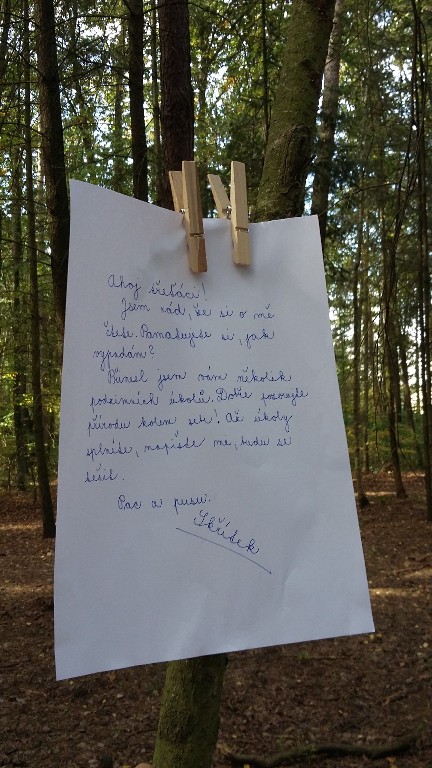 Ahoj štěňáci!
Jsem rád, že si o mě
čtete. Pamatujete si, jak
vypadám?
Přinesl jsem vám několik
podzimních úkolů. Dobře pozorujte
přírodu kolem sebe! Až úkoly
splníte, napište mi, budu se
těšit.
Pac a pusu.
Skřítek